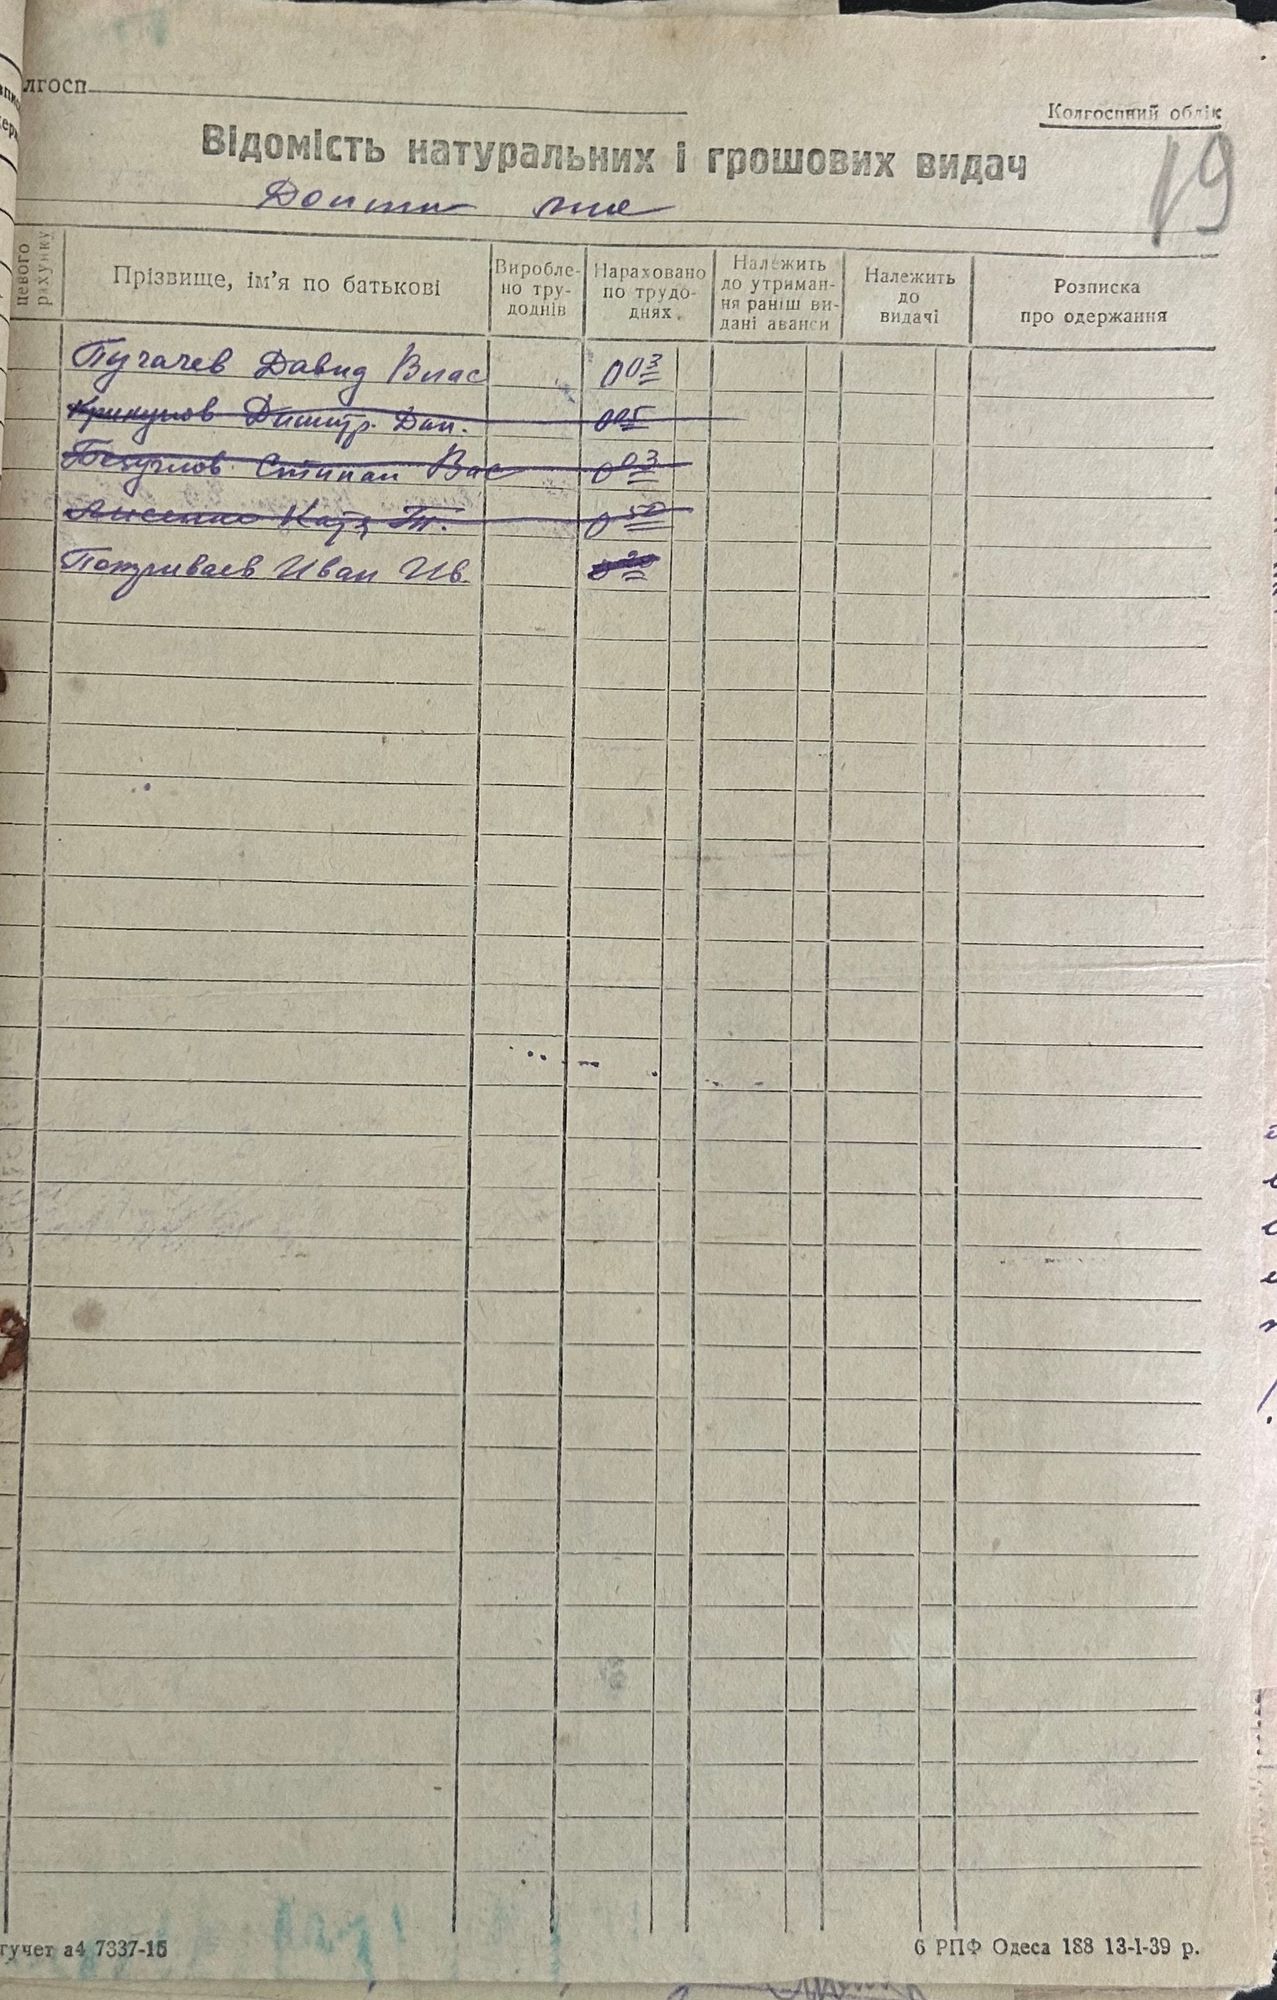 лгосп
Колгоспний облік
19
Відомість натуральних і грошових видач
цевого рахунку
Прізвище, ім'я по батькові
Виробле-
но тру-
доднів
Нараховано
по трудо-
днях
Належить
до утриман-
ня раніш ви-
дані аванси
Належить
до
видачі
Розписка
про одержання
Пугачев Давид Влас 003
Крикунов Дмитр. Дан. 005
Стипан Вас 003
Лисенко Катя 0 50
Иван Ив. 0 20
гучет а4 7337-15
6 РПФ Одеса 188 13-І-39 р.